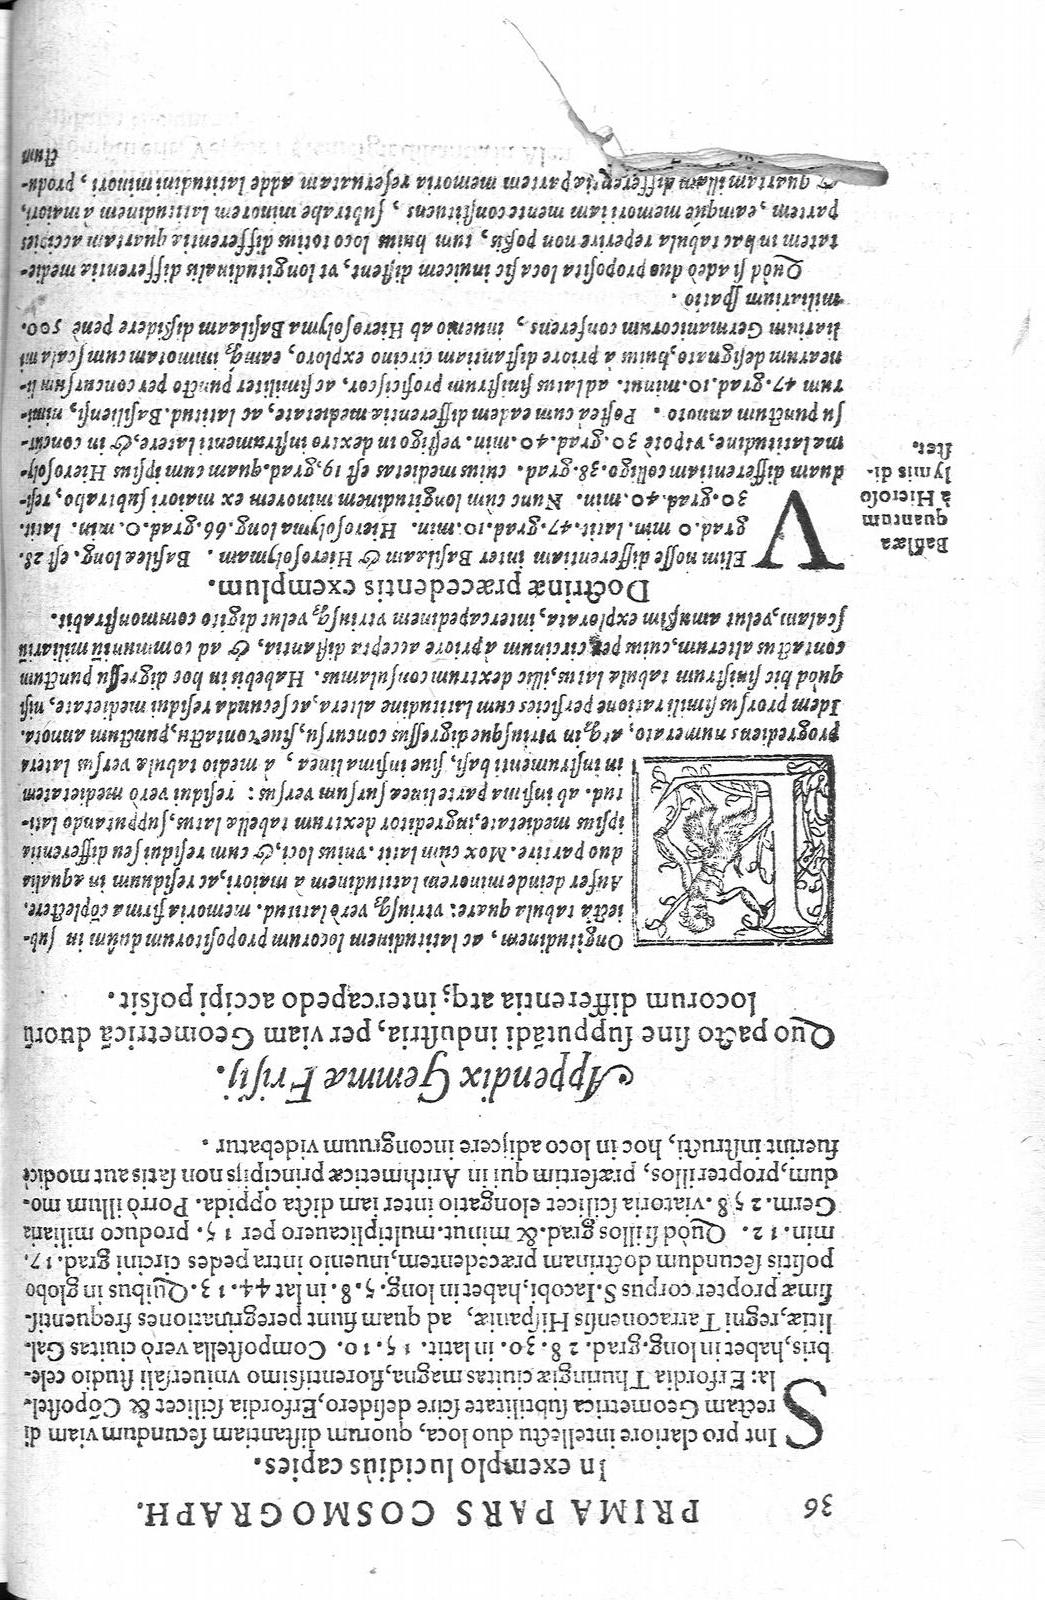 36
PRIMA PARS COSMOGRAPH.
In exemplo lucidiùs capies.
Sint pro clariore intellectu duo loca, quorum distantiam secundum viam di
rectam Geometrica subtilitate scire desidero, Erfordia scilicet & Cõpostel-
la: Erfordia Thuringiæ ciuitas magna, florentissimo vniuersali studio cele-
bris, habet in long. grad. 28. 30. in latit. 51. 10. Compostella verò ciuitas Gal-
litiæ, regni Tarraconensis Hispaniæ, ad quam fiunt peregrinationes frequentis-
simæ propter corpus S. Iacobi, habet in long. 5. 8. in lat 44. 13. Quibus in globo
positis secundum doctrinam præcedentem, inuenio intra pedes circini grad. 17.
min. 12. Quòd si illos grad. & minut. multiplicauero per 15. produco miliaria
Germ. 258. viatoria scilicet elongatio inter iam dicta oppida. Porrò illum mo-
dum, propter illos, præsertim qui in Arithmeticæ principijs non satis aut modicè
fuerint instructi, hoc in loco adijcere incongruum videbatur.
Appendix Gemmæ Frisij.
Quo pacto sine supputãdi industria, per viam Geometricã duorũ
locorum differentia atq; intercapedo accipi possit.
LOngitudinem, ac latitudinem locorum propositorum duûm in sub-
iecta tabula quære: vtriusq; verò latitud. memoria firma cõplectere.
Aufer deinde minorem latitudinem à maiori, ac residuum in æqualia
duo partire. Mox cum latit. vnius loci, & cum residui seu differentia
ipsius medietate, ingreditor dextrum tabellæ latus, supputando lati-
tud. ab infima parte lineæ sursum versus: residui verò medietatem
in instrumenti basi, siue infima linea, à medio tabulæ versus latera
progrediens numerato, atq; in vtriusque digressus concursu, siue contactu, punctum annota.
Idem prorsus simili ratione perficies cum latitudine altera, ac secunda residui medietate, nisi
quòd hic sinistrum tabulæ latus, illic dextrum consulamus. Habebis in hoc digressu punctum
contactus alterum, cuius per circinum à priore accepta distantia, & ad communiũ miliariũ
scalam, velut amussim explorata, intercapedinem vtriusq; velut digito commonstrabit.
Doctrinæ præcedentis exemplum.
VElim nosse differentiam inter Basilæam & Hierosolymam. Basileæ long. est 28.
grad. 0 min. latit. 47. grad. 10. min. Hierosolyma long. 66. grad. 0. min. latit.
30. grad. 40. min. Nunc cùm longitudinem minorem ex maiori subtrabo, resi-
duam differentiam colligo. 38. grad. cuius medietas est 19, grad. quam cum ipsius Hierosoly-
mæ latitudine, vtpote 30. grad. 40. min. vestigo in dextro instrumenti latere, & in concur-
su punctum annoto. Postea cum eadem differentiæ medietate, ac latitud. Basiliensi, nimi-
rum 47. grad. 10. minut. ad latus sinistrum proficiscor, ac similiter puncto per concursum li-
nearum designato, huius à priore distantiam circino exploro, eamq; immotam cum scala mi
liarium Germanicorum conferens, inuenio ab Hierosolyma Basilæam dissidere penè 500.
miliarium spatio.
Quòd si adeò duo proposita loca sic inuicem distent, vt longitudinalis differentiæ medie-
tatem in hac tabula reperire non possis, tum huius loco totius differentiæ quartam accipias
partem, eamque memoriter in mente constituens, subtrahe minorem latitudinem à maiori,
& quartam illam differentiæ partem memoria reseruatam adde latitudini minori, produ-
ctum
Basilæa
quantum
à Hieroso
lymis di-
stet.